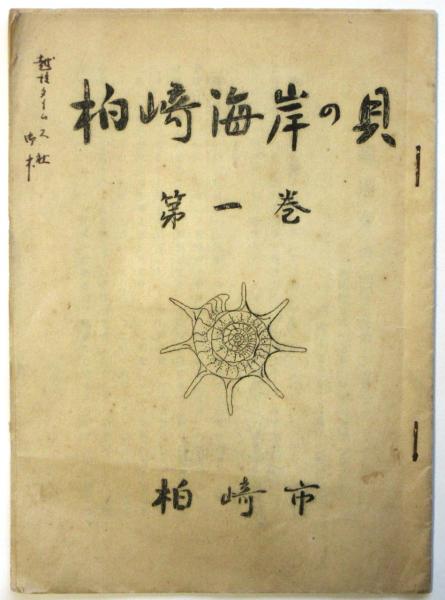 柏崎海岸の貝
第一巻
柏崎市
越後タイムス社